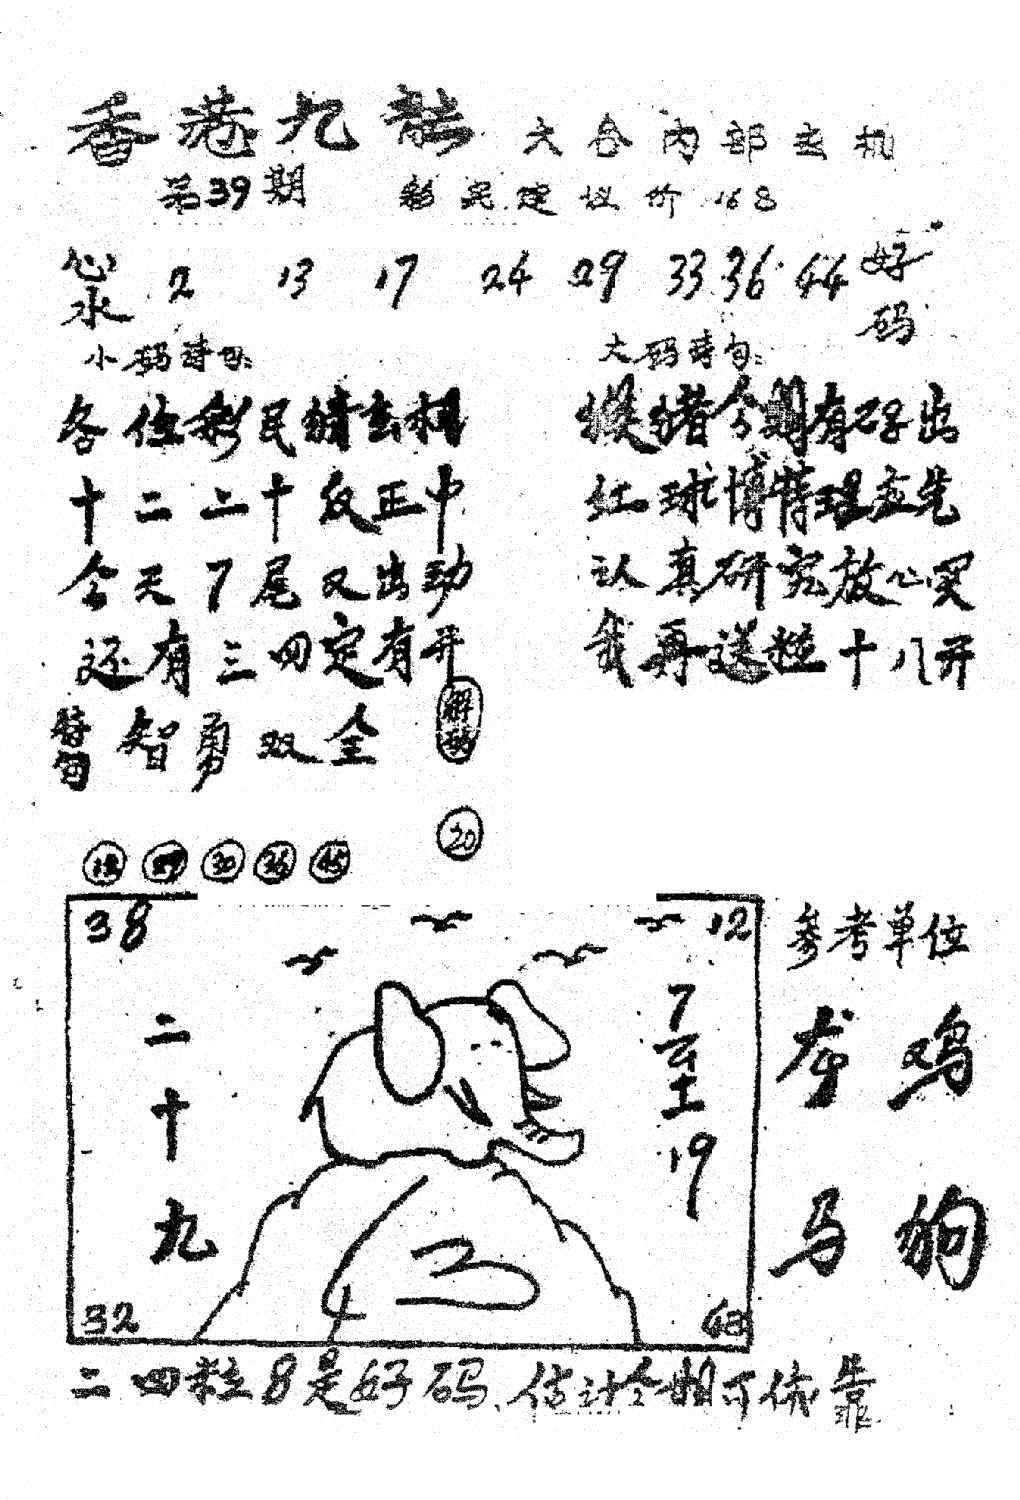 香港九龙 大合内部玄机
第39期 彩民建议价 168
心水 2 13 17 24 29 33 36 44 好码
小码诗句: 大码诗句:
各位彩民猜玄机
十二二十反正中
今天7尾又出动
还有三四定有开
猪今期有码出
红球博特理应先
认真研究放心买
我再送粒十八开
特句 智勇双全 解码
20
30 36 45
38 12 参考单位
二十九 7至19
龙 鸡
马 狗
32
二四粒8是好码 估计今期可依靠